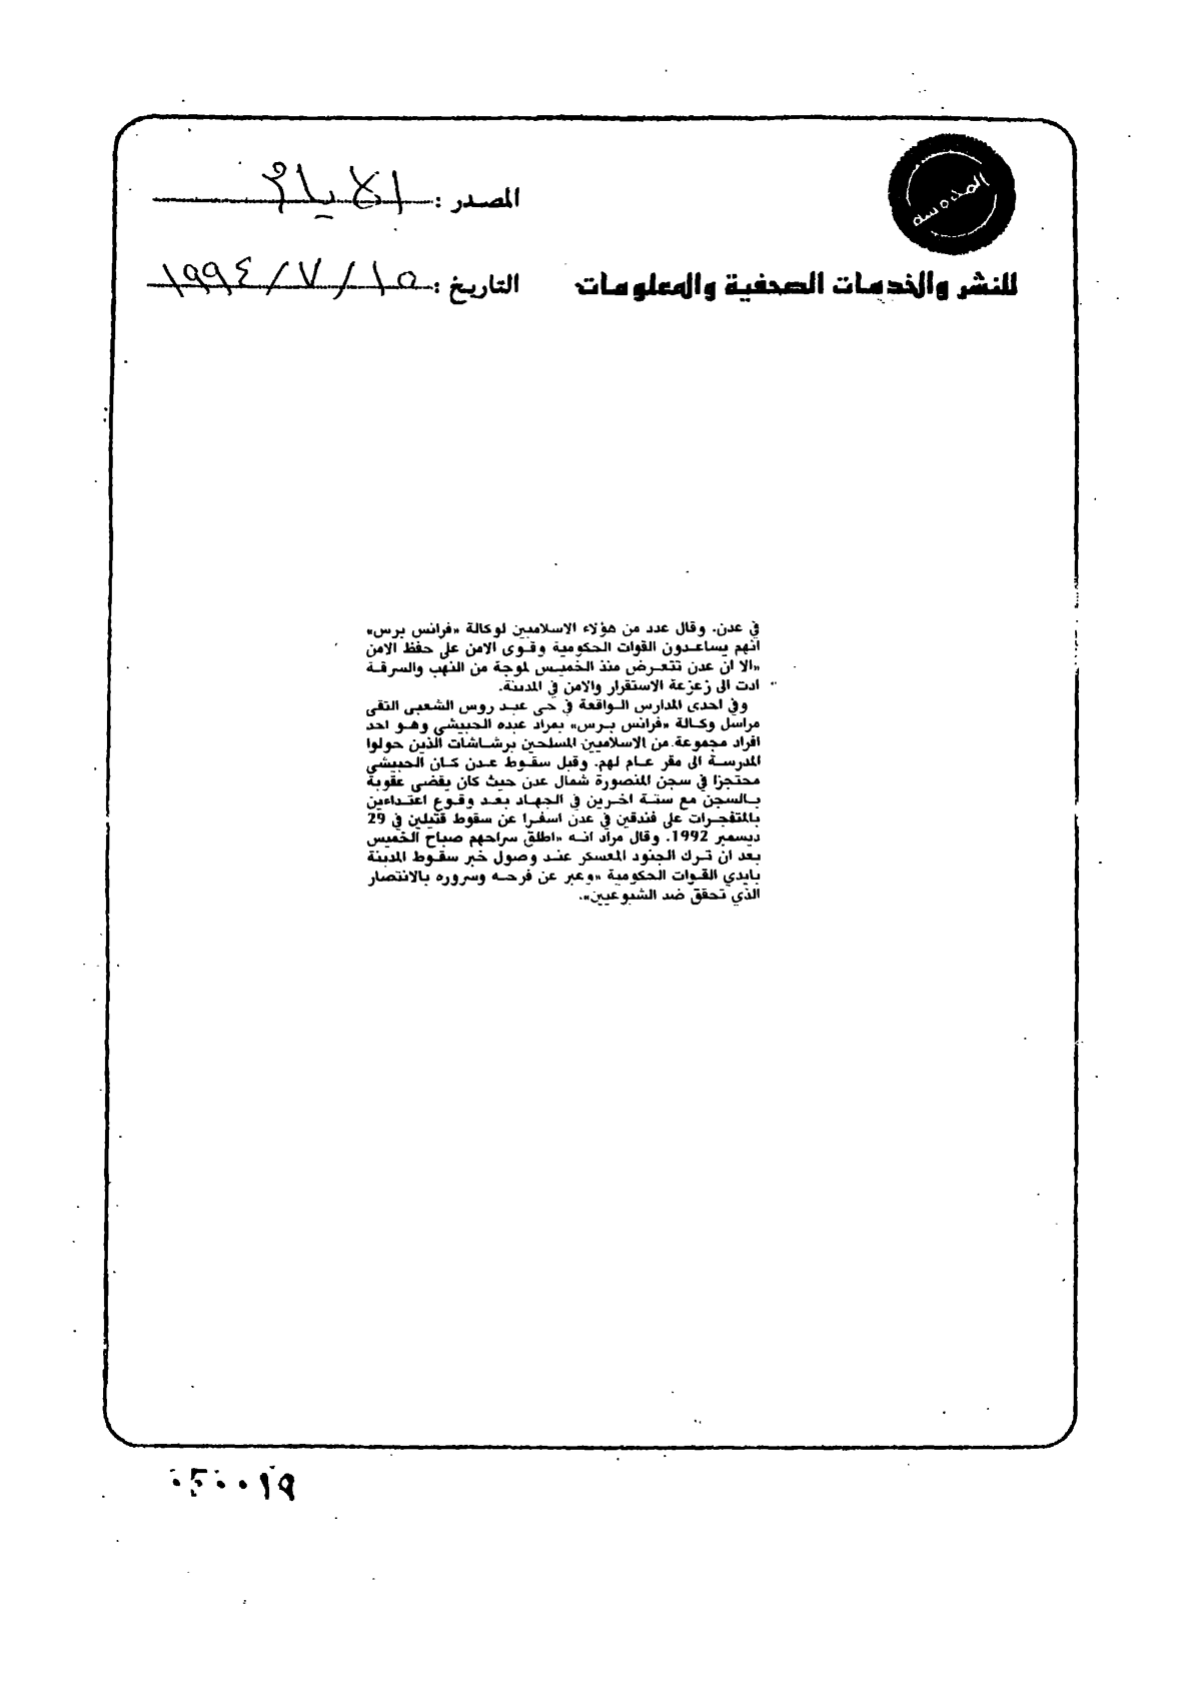 المصدر : الايام
للنشر والخدمات الصحفية والمعلومات
التاريخ : ١٥ / ٧ / ١٩٩٤
في عدن. وقال عدد من هؤلاء الاسلاميين لوكالة «فرانس برس»
انهم يساعدون القوات الحكومية وقوى الامن على حفظ الامن
«الا ان عدن تتعرض منذ الخميس لموجة من النهب والسرقة
ادت الى زعزعة الاستقرار والامن في المدينة.
وفي احدى المدارس الواقعة في حى عبد روس الشعبى التقى
مراسل وكالة «فرانس برس» بمراد عبده الحبيشي وهو احد
افراد مجموعة من الاسلاميين المسلحين برشاشات الذين حولوا
المدرسة الى مقر عام لهم. وقبل سقوط عدن كان الحبيشي
محتجزا في سجن المنصورة شمال عدن حيث كان يقضى عقوبة
بالسجن مع ستة اخرين في الجهاد بعد وقوع اعتداءين
بالمتفجرات على فندقين في عدن اسفرا عن سقوط قتيلين في 29
ديسمبر 1992. وقال مراد انه «اطلق سراحهم صباح الخميس
بعد ان ترك الجنود المعسكر عند وصول خبر سقوط المدينة
بايدي القوات الحكومية «وعبر عن فرحه وسروره بالانتصار
الذي تحقق ضد الشيوعيين».